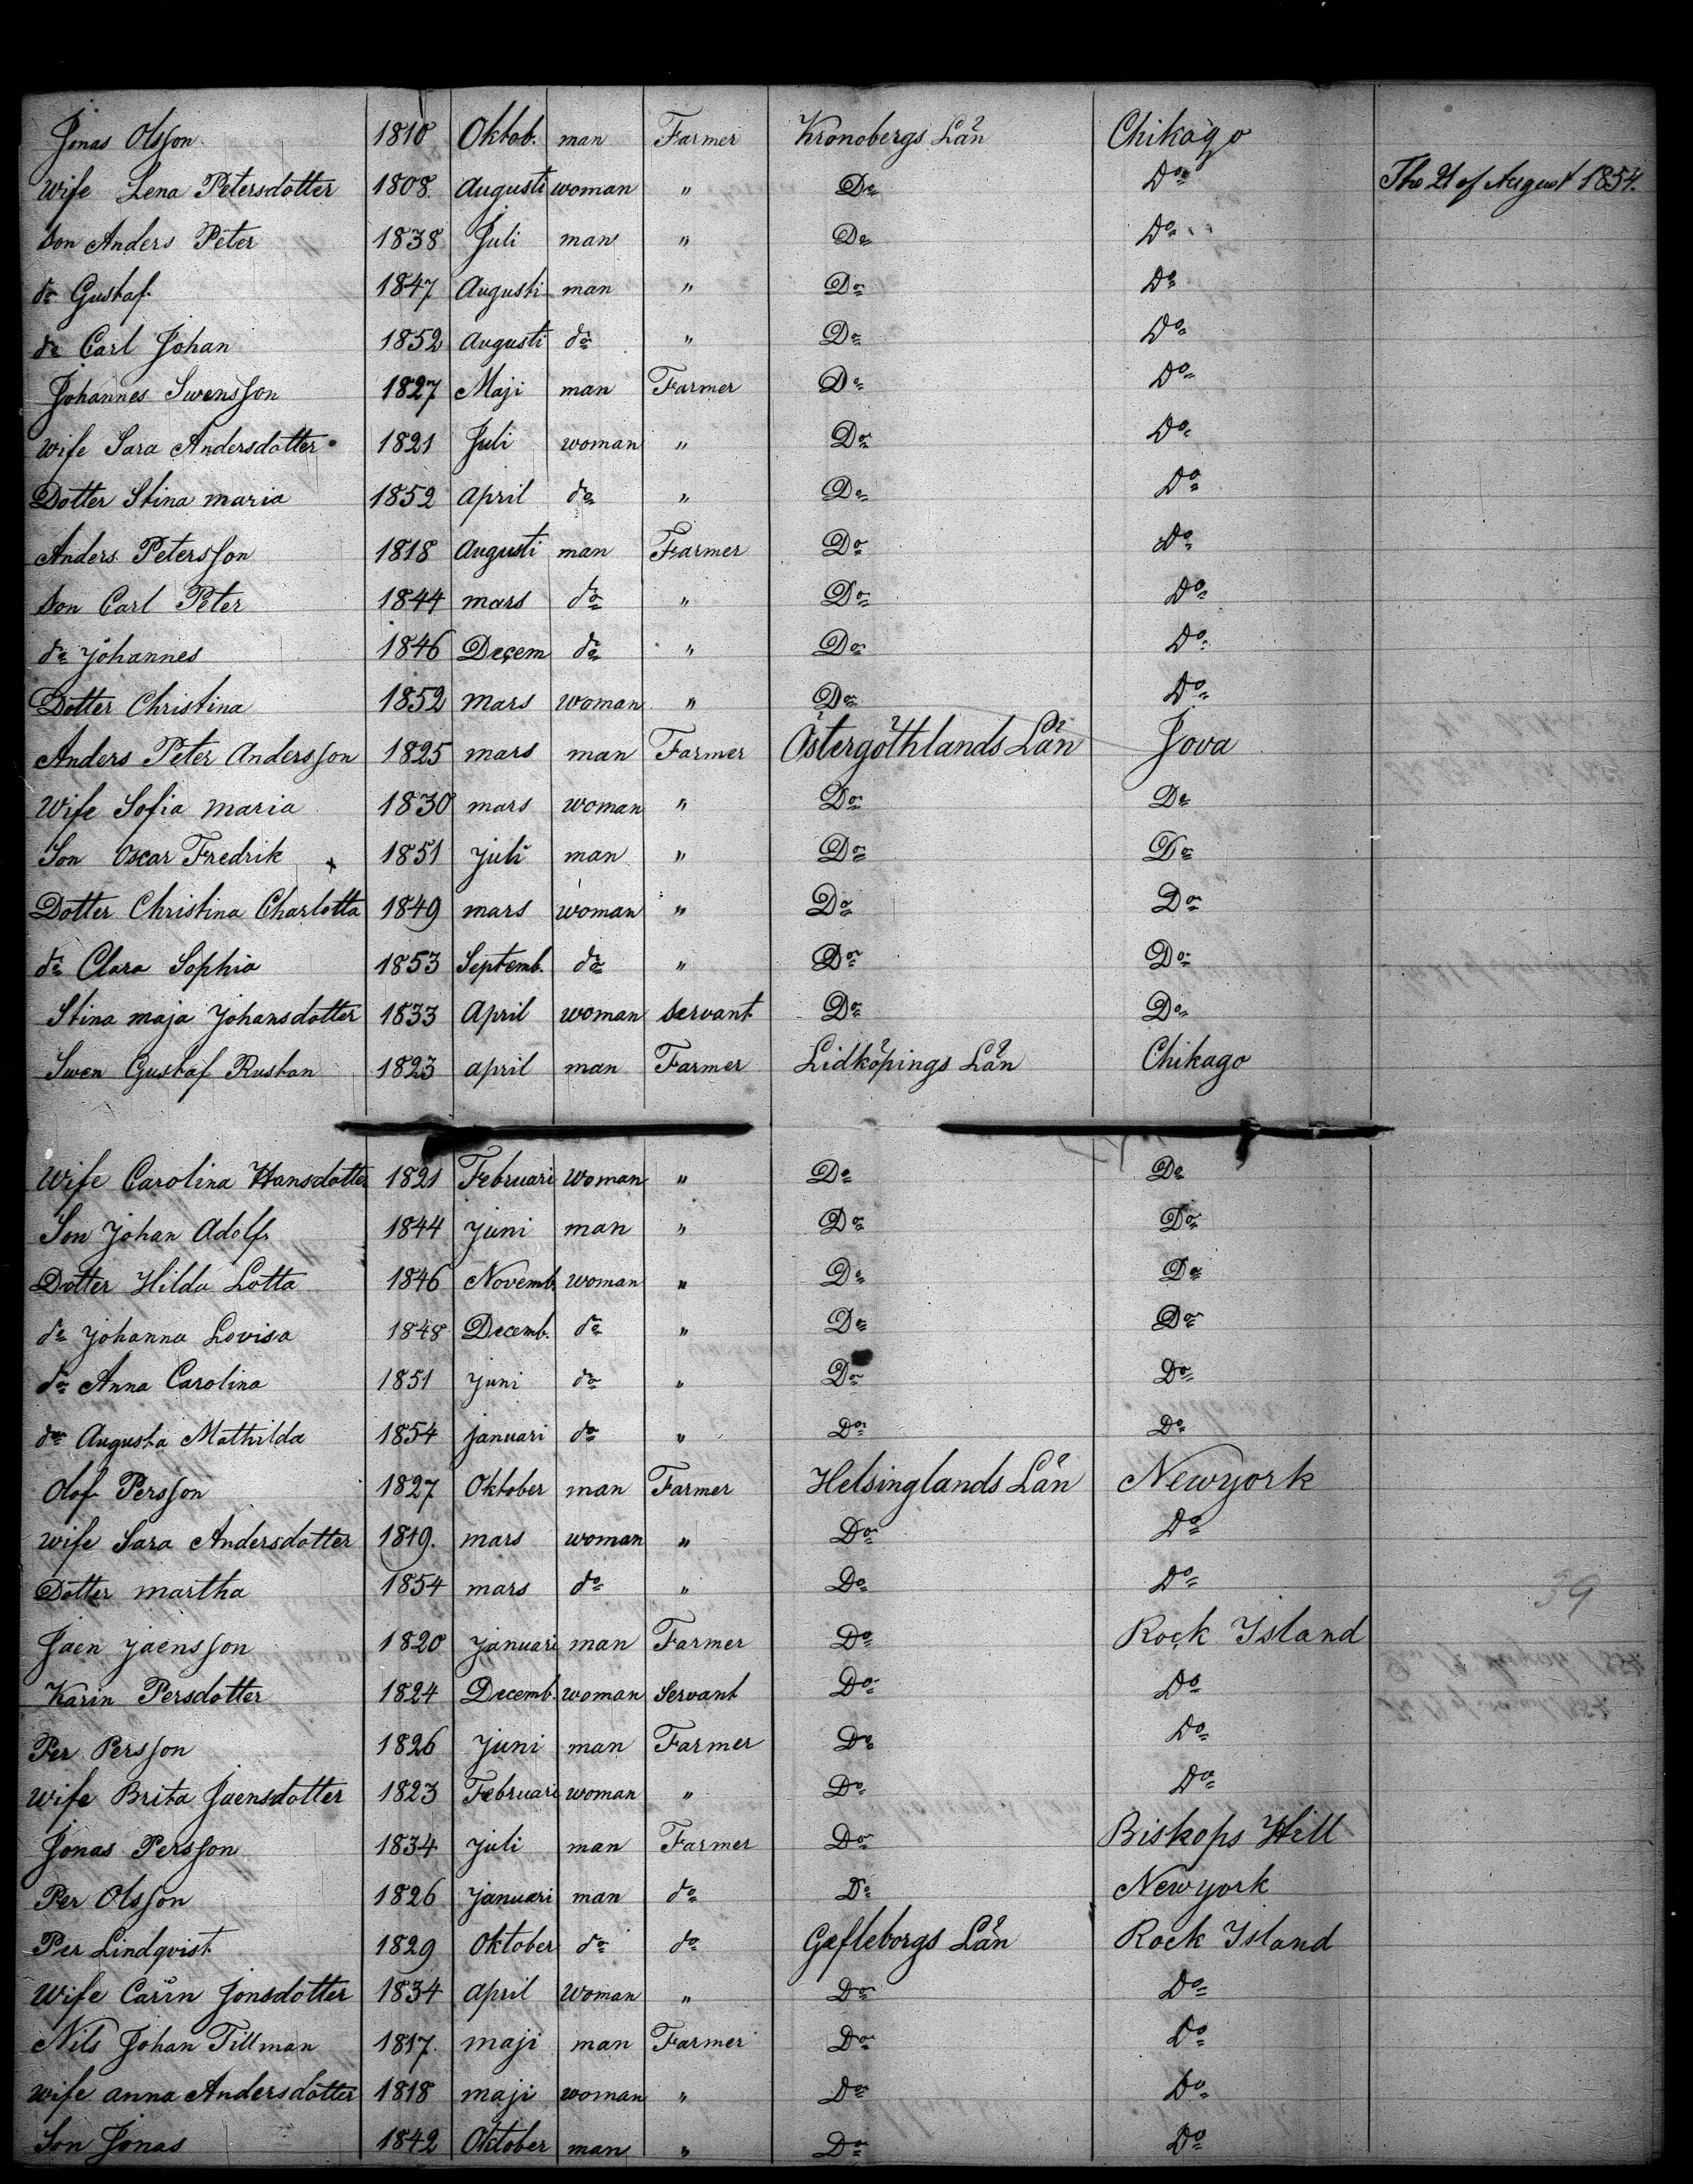 Jonas Olsson. 1810 Oktob. man Farmer Kronobergs Län Chikago
Wife Lena Petersdotter 1808. Augusti woman " Do Do The 21 of August 1854.
Son Anders Peter 1838 Juli man " Do Do
do Gustaf. 1847 Augusti man " Do Do
do Carl Johan 1852 Augusti do " Do Do
Johannes Swensson 1827 Maji man Farmer Do Do
Wife Sara Andersdotter 1821 Juli woman " Do Do
Dotter Stina maria 1852 April do " Do Do
Anders Petersson 1818 Augusti man Farmer Do Do
Son Carl Peter 1844 mars do " Do Do
do Johannes 1846 Decem do " Do Do
Dotter Christina 1852 mars woman " Do Do
Anders Peter Andersson 1825 mars man Farmer Östergöthlands Län Jova
Wife Sofia maria 1830 mars woman " Do Do
Son Oscar Fredrik 1851 Juli man " Do Do
Dotter Christina Charlotta 1849 mars woman " Do Do
do Clara Sophia 1853 Septemb. do " Do Do
Stina maja Johansdotter 1833 April woman servant Do Do
Swen Gustaf Rustan 1823 april man Farmer Lidköpings Län Chikago
Wife Carolina Hansdotter 1821 Februari Woman " Do Do
Son Johan Adolf 1844 Juni man " Do Do
Dotter Hilda Lotta 1846 Novemb. woman " Do Do
do Johanna Lovisa 1848 Decemb. do " Do Do
do Anna Carolina 1851 Juni do " Do Do
do Augusta Mathilda 1854 januari do " Do Do
Olof Persson 1827 Oktober man Farmer Helsinglands Län Newyork
wife Sara Andersdotter 1819. mars woman " Do Do
Dotter martha 1854 mars do " Do Do
Jaen Jaensson 1820 Januari man Farmer Do Rock Island
Karin Persdotter 1824 Decemb. woman Servant Do Do
Per Persson 1826 Juni man Farmer Do Do
Wife Brita Jaensdotter 1823 Februari woman " Do Do
Jonas Persson 1834 Juli man Farmer Do Biskops Hill
Per Olsson 1826 Januari man do Do Newyork
Per Lindqvist 1829 Oktober do do Gefleborgs Län Rock Island
Wife Carin Jonsdotter 1834 April Woman " Do Do
Nils Johan Tillman 1817. maji man Farmer Do Do
wife anna Andersdotter 1818 maji woman " Do Do
Son Jonas 1842 Oktober man " Do Do